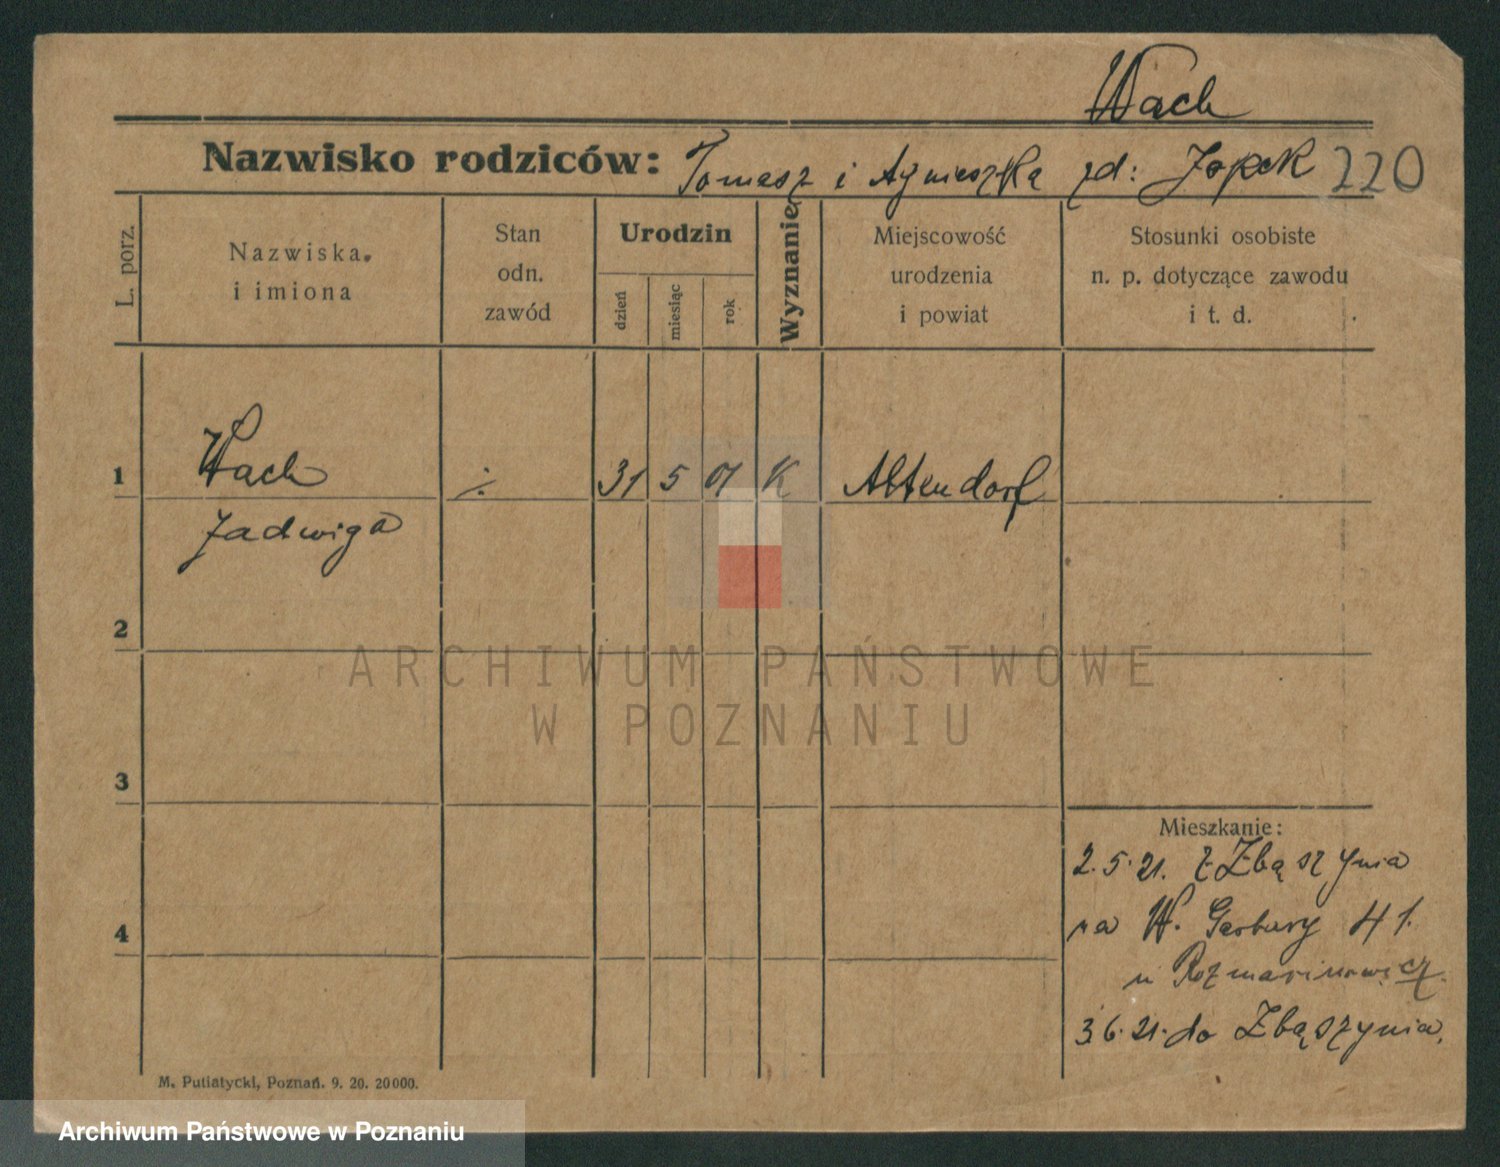 Wach
Nazwisko rodziców: Tomasz i Agnieszka zd: Jopek 220
L. porz.
Nazwiska i imiona
Stan odn. zawód
Urodzin
dzień
miesiąc
rok
Wyznanie
Miejscowość urodzenia i powiat
Stosunki osobiste n. p. dotyczące zawodu i t. d.
1 Wach ·/. 31 5 01 K Altendorf
Jadwiga
2
3
4
ARCHIWUM PAŃSTWOWE
W POZNANIU
Mieszkanie:
2.5.21. z Zbąszynia
na W. Garbary 41.
u Rozmarinowicz.
3.6.21. do Zbąszynia.
M. Putiatycki, Poznań. 9. 20. 20000.
Archiwum Państwowe w Poznaniu